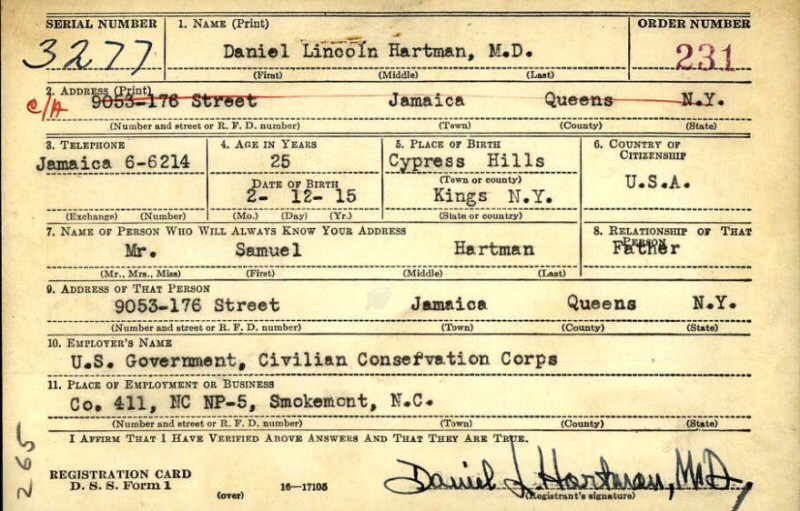 SERIAL NUMBER 1. NAME (Print) ORDER NUMBER
3277 Daniel Lincoln Hartman, M.D. 231
(First) (Middle) (Last)
2. ADDRESS (Print)
C/A 9053-176 Street Jamaica Queens N.Y.
(Number and street or R. F. D. number) (Town) (County) (State)
3. TELEPHONE 4. AGE IN YEARS 5. PLACE OF BIRTH 6. COUNTRY OF CITIZENSHIP
Jamaica 6-6214 25 Cypress Hills
DATE OF BIRTH (Town or county) U.S.A.
2- 12- 15 Kings N.Y.
(Exchange) (Number) (Mo.) (Day) (Yr.) (State or country)
7. NAME OF PERSON WHO WILL ALWAYS KNOW YOUR ADDRESS 8. RELATIONSHIP OF THAT PERSON
Mr. Samuel Hartman Father
(Mr., Mrs., Miss) (First) (Middle) (Last)
9. ADDRESS OF THAT PERSON
9053-176 Street Jamaica Queens N.Y.
(Number and street or R. F. D. number) (Town) (County) (State)
10. EMPLOYER'S NAME
U.S. Government, Civilian Conservation Corps
11. PLACE OF EMPLOYMENT OR BUSINESS
Co. 411, NC NP-5, Smokemont, N.C.
(Number and street or R. F. D. number) (Town) (County) (State)
I AFFIRM THAT I HAVE VERIFIED ABOVE ANSWERS AND THAT THEY ARE TRUE.
265
REGISTRATION CARD Daniel L. Hartman, M.D.
D. S. S. Form 1 (over) 16—17105 (Registrant's signature)